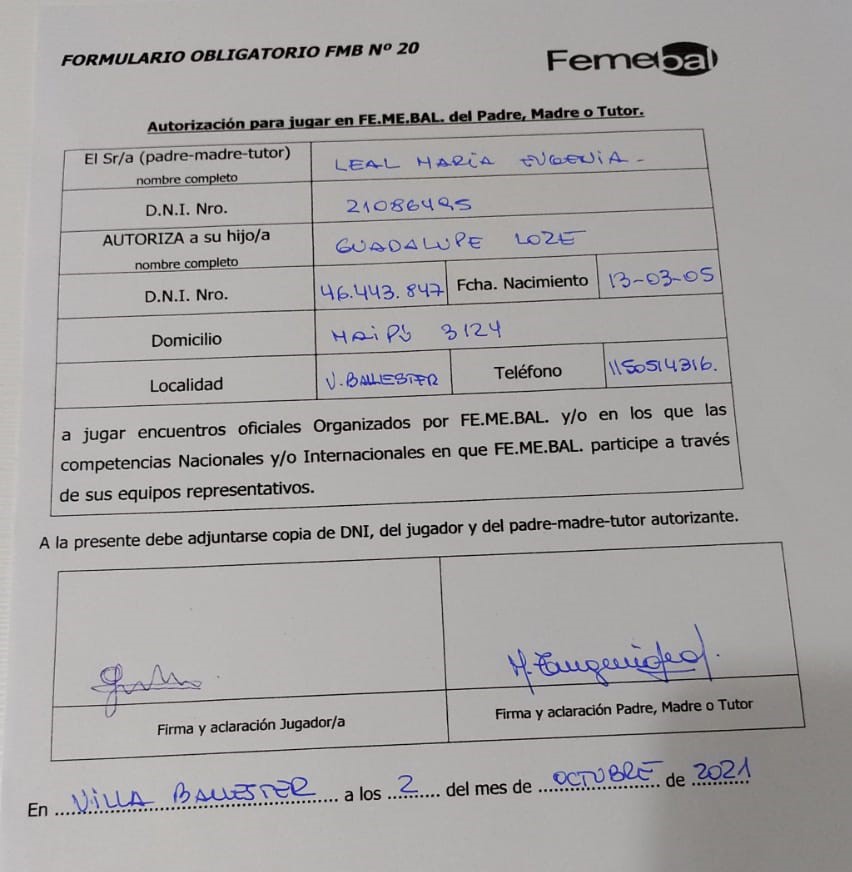 FORMULARIO OBLIGATORIO FMB Nº 20
Femebal
Autorización para jugar en FE.ME.BAL. del Padre, Madre o Tutor.
El Sr/a (padre-madre-tutor) nombre completo
LEAL MARÍA EUGENIA -
D.N.I. Nro.
21086495
AUTORIZA a su hijo/a nombre completo
GUADALUPE LOZE
D.N.I. Nro.
46.443.847
Fcha. Nacimiento
13-03-05
Domicilio
MAIPÚ 3124
Localidad
V. BALLESTER
Teléfono
1150514316.
a jugar encuentros oficiales Organizados por FE.ME.BAL. y/o en los que las
competencias Nacionales y/o Internacionales en que FE.ME.BAL. participe a través
de sus equipos representativos.
A la presente debe adjuntarse copia de DNI, del jugador y del padre-madre-tutor autorizante.
M. Eugenia Leal.
Firma y aclaración Jugador/a
Firma y aclaración Padre, Madre o Tutor
En VILLA BALLESTER a los 2 del mes de OCTUBRE de 2021